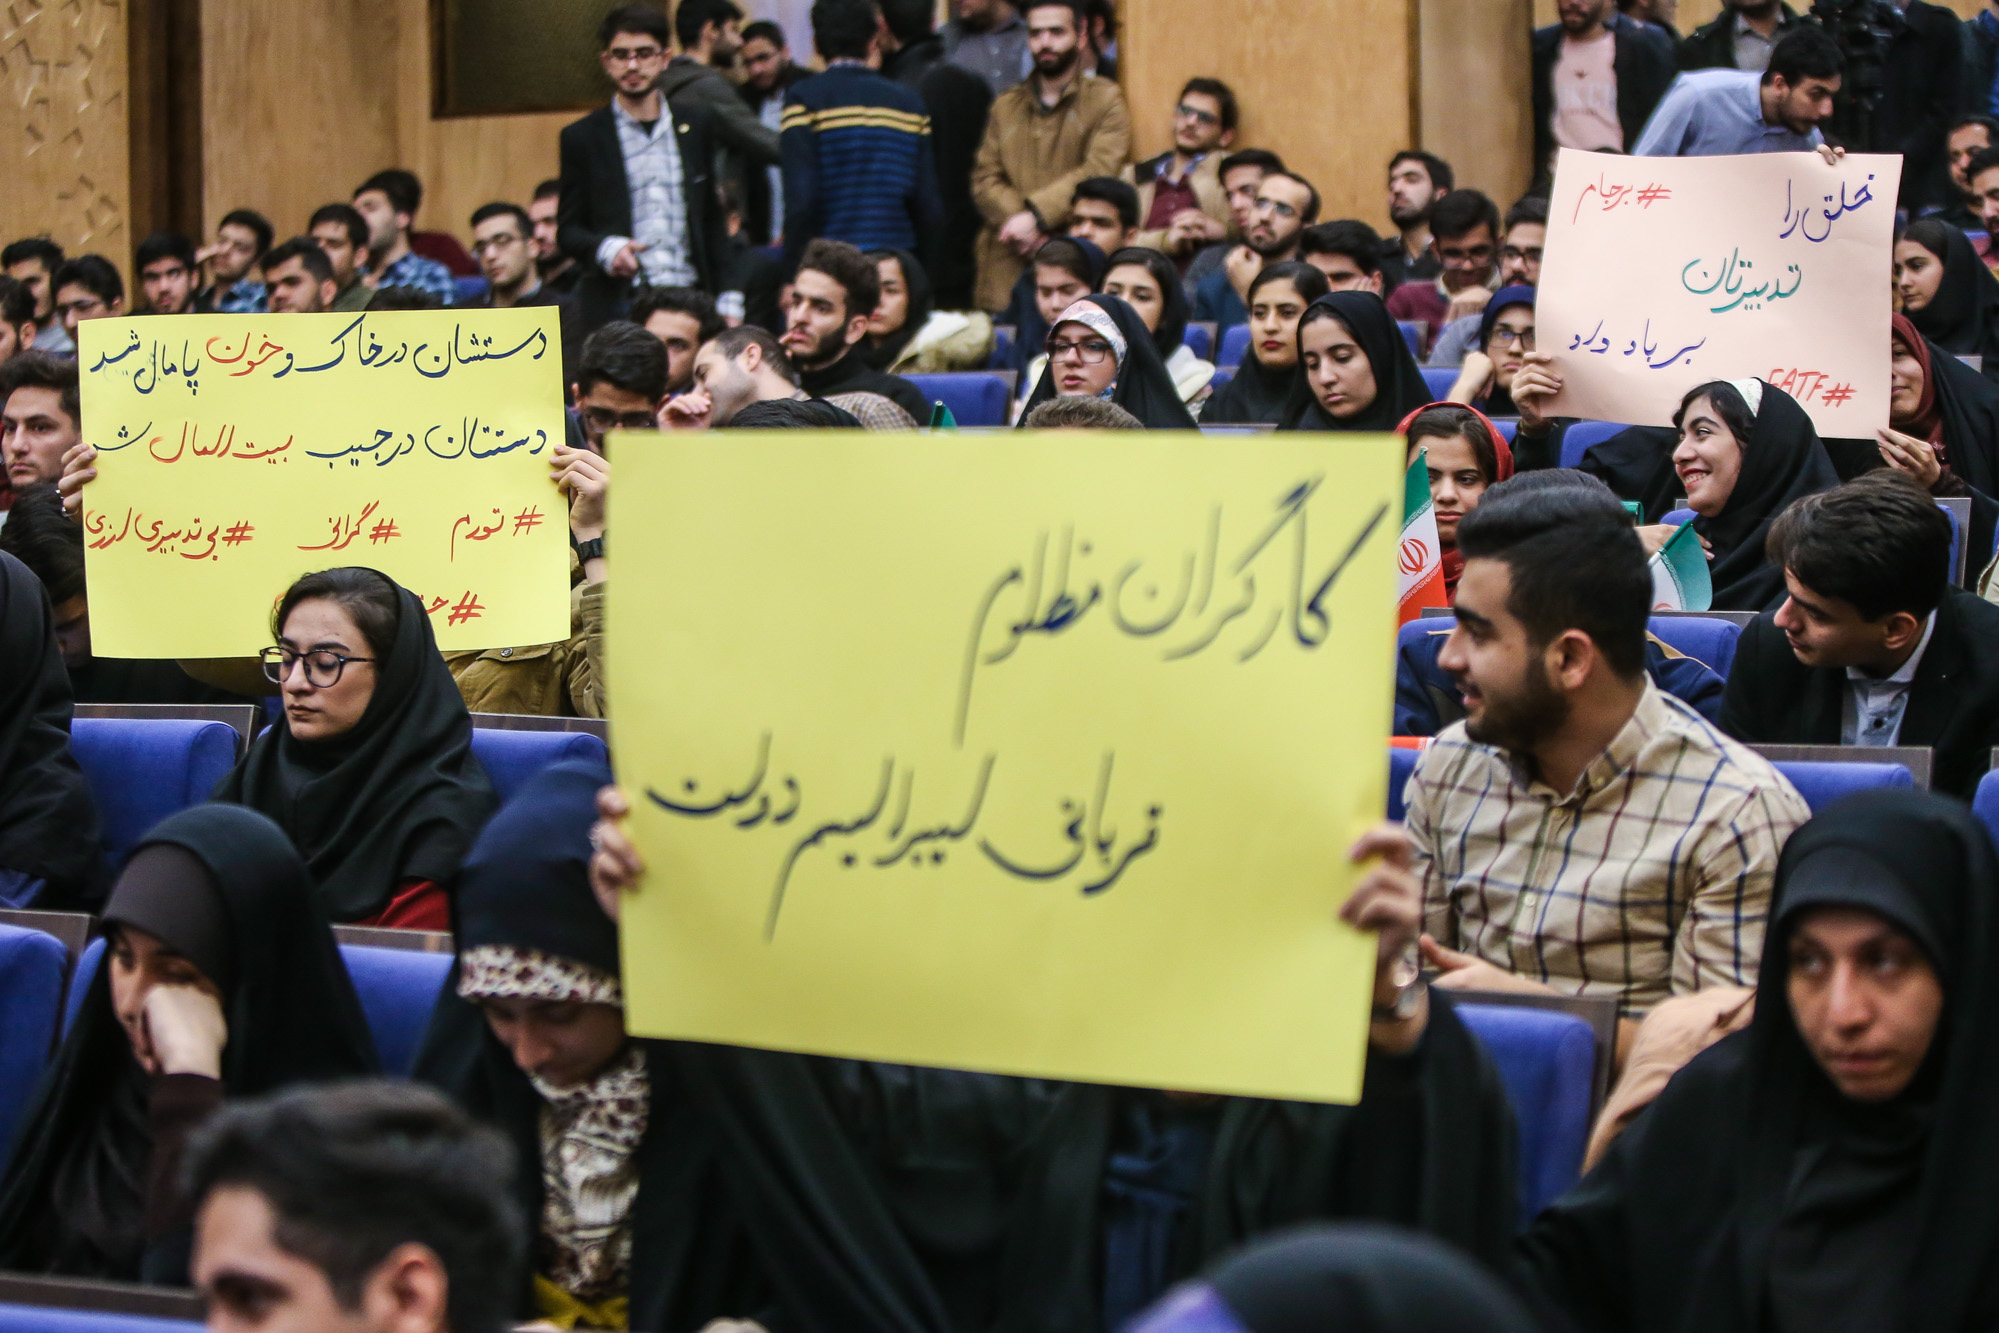 دستشان در خاک و خون پامال شد
دستتان در جیب بیت المال شد
#تورم #گرانی #بی‌تدبیری_ارزی
#
کارگران مظلوم
قربانی لیبرالیسم دولت
خلق را #برجام
تدبیرتان
بر باد
#FATF